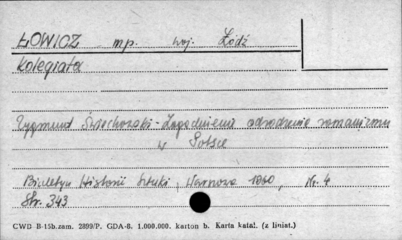 ŁOWICZ mp. woj. Łódź
Kolegiata
Zygmunt Świechowski - Zagadnienie odrodzenia romanizmu
w Polsce
Biuletyn Historii Sztuki, Warszawa 1960, Nr. 4
Str. 343
CWD B-15b.zam. 2899/P. GDA-6. 1.000.000. karton b. Karta katal. (z liniat.)